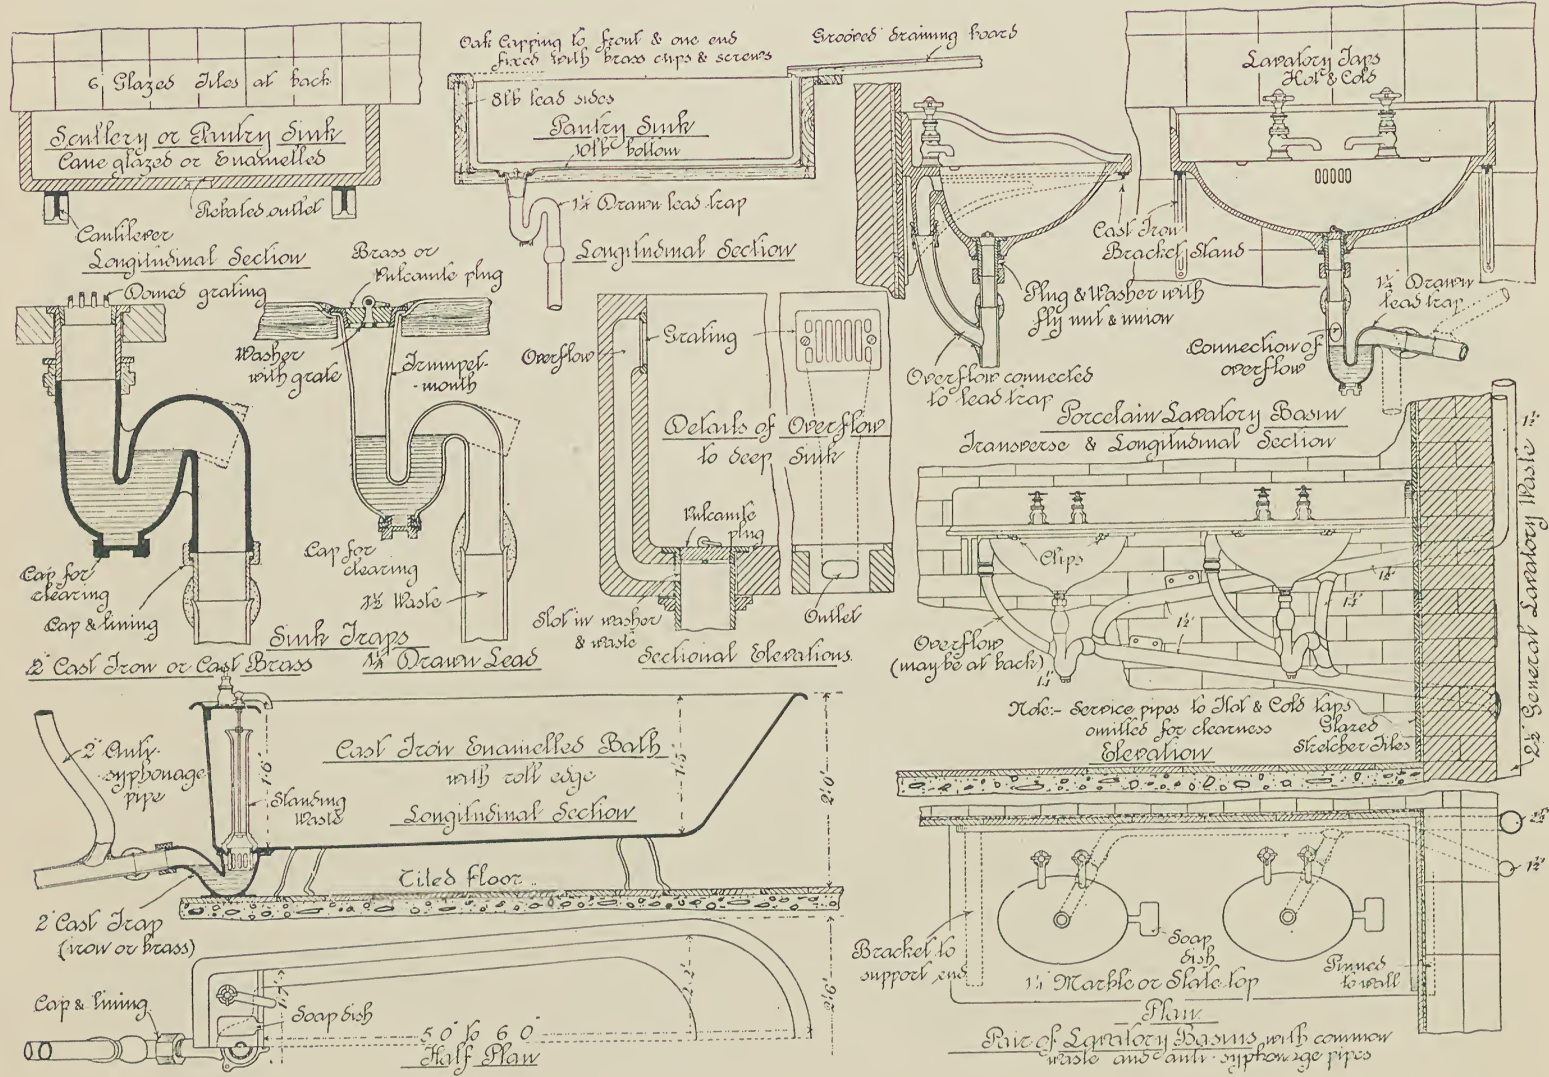 6" Glazed Tiles at back
Scullery or Pantry Sink
Cane glazed or Enamelled
Rebated outlet
Cantilever
Longitudinal Section
Oak Capping to front & one end
fixed with brass clips & screws
Grooved draining board
8lb lead sides
Pantry Sink
10lb bottom
1¼" Drawn lead trap
Longitudinal Section
Lavatory Taps
Hot & Cold
Cast Iron
Bracket Stand
Plug & Washer with
fly nut & union
Overflow connected
to lead trap
Connection of
overflow
1¼" Drawn
lead trap
Porcelain Lavatory Basin
Transverse & Longitudinal Section
Domed grating
Brass or
Vulcanite plug
Washer
with grate
Trumpet-
mouth
Cap for
clearing
Cap & lining
Cap for
clearing
1½" Waste
Sink Traps
2" Cast Iron or Cast Brass
1¼" Drawn Lead
Overflow
Grating
Details of Overflow
to deep Sink
Vulcanite
plug
Slot in washer
& waste
Outlet
Sectional Elevations.
Clips
1½"
1½"
1¼"
1½"
1¼"
Overflow
(may be at back)
Note:- Service pipes to Hot & Cold taps
omitted for clearness
Elevation
Glazed
Stretcher Tiles
2½" General Lavatory Waste
2" Anti-
syphonage
pipe
Standing
Waste
1'.6"
Cast Iron Enamelled Bath
with roll edge
Longitudinal Section
1'.5"
2'.0"
Tiled floor
2" Cast Trap
(iron or brass)
Cap & lining
Soap dish
1'.7"
2'.2"
2'.6"
5'.0" to 6'.0"
Half Plan
2½"
1½"
Bracket to
support end
Soap
dish
1¼" Marble or Slate top
Pinned
to wall
Plan
Pair of Lavatory Basins with common
waste and anti-syphonage pipes